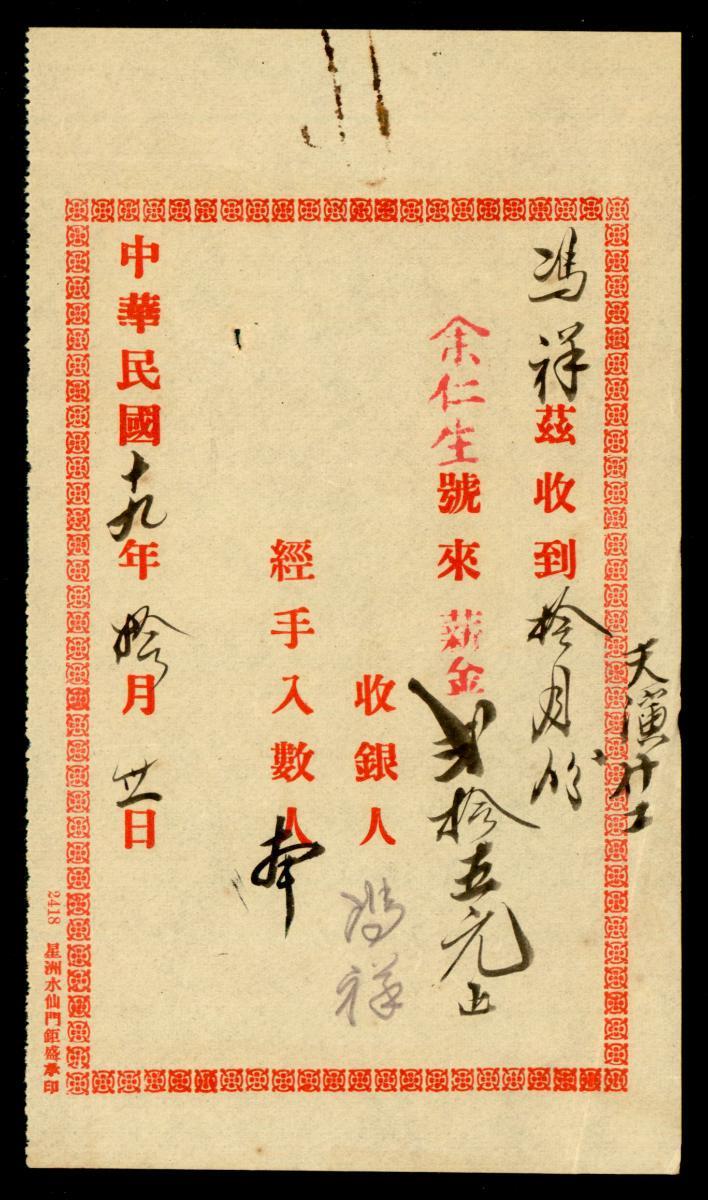 馮祥茲收到拾月份
余仁生號來薪金貳拾五元正
收銀人馮祥
經手入數人
中華民國十九年拾月廿日
2418 星洲水仙門鉅盛承印